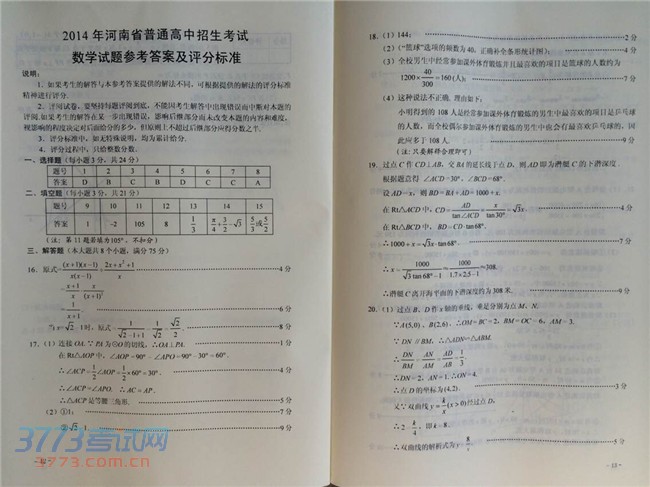 2014 年河南省普通高中招生考试
数学试题参考答案及评分标准
说明：
1．如果考生的解答与本参考答案提供的解法不同，可根据提供的解法的评分标准
精神进行评分．
2．评阅试卷，要坚持每题评阅到底，不能因考生解答中出现错误而中断对本题的
评阅．如果考生的解答在某一步出现错误，影响后继部分而未改变本题的内容和难度，
视影响的程度决定对后面给分的多少，但原则上不超过后继部分应得分数之半．
3．评分标准中，如无特殊说明，均为累计给分．
4．评分过程中，只给整数分数．
一、选择题（每小题 3 分，共 24 分）
题号 1 2 3 4 5 6 7 8
答案 D B C B D C C A
二、填空题（每小题 3 分，共 21 分）
题号 9 10 11 12 13 14 15
答案 1 -2 105 8 1/3 π/4+3/2-√3 5/3或5/2
（注：第 11 题若填为105°，不扣分）
三、解答题（本大题共 8 个小题，满分 75 分）
16．原式=(x+1)(x-1)/x(x-1) 2x+x²+1/x 4 分
=x+1/x x/(x+1)²
=1/x+1. 6 分
当x=√2-1时，原式=1/√2-1+1=1/√2=√2/2 8 分
17．（1）连接 OA．∵PA 为⊙O 的切线，∴OA⊥PA． 1 分
在 Rt△AOP 中，∠AOP=90°-∠APO=90°-30°=60°．
∴∠ACP=1/2∠AOP=1/2×60°=30°． 4 分
∴∠ACP=∠APO．∴AC=AP．
∴△ACP 是等腰三角形． 5 分
（2）①1； 7 分
②√2-1． 9 分
3773考试网
3773.com.cn
18．（1）144； 2 分
（2）（“篮球”选项的频数为 40．正确补全条形统计图）； 4 分
（3）全校男生中经常参加课外体育锻炼并且最喜欢的项目是篮球的人数约为
1200×40/300=160(人)； 7 分
（4）这种说法不正确．理由如下：
小明得到的 108 人是经常参加课外体育锻炼的男生中最喜欢的项目是乒乓球
的人数，而全校偶尔参加课外体育锻炼的男生中也会有最喜欢乒乓球的，因
此应多于 108 人． 9 分
（注：只要解释合理即可）
19．过点 C 作 CD⊥AB，交 BA 的延长线于点 D，则 AD 即为潜艇 C 的下潜深度．
根据题意得 ∠ACD=30°，∠BCD=68°．
设 AD=x，则 BD=BA+AD=1000+x．
在 Rt△ACD 中，CD=AD/tan∠ACD=x/tan30°=√3x 4 分
在 Rt△BCD 中，BD=CD·tan68°．
∴1000+x=√3x·tan68° 7 分
∴x=1000/√3 tan68°-1≈1000/1.7×2.5-1≈308．
∴潜艇 C 离开海平面的下潜深度约为 308 米． 9 分
20．（1）过点 B、D 作 x 轴的垂线，垂足分别为点 M、N．
∵A(5,0)，B(2,6)，∴OM=BC=2，BM=OC=6，AM=3．
∵DN∥BM，∴△ADN∽△ABM．
∴DN/BM=AN/AM=AD/AB=1/3
∴DN=2，AN=1．∴ON=4．
∴点 D 的坐标为(4,2)． 3 分
又∵双曲线 y=k/x(x>0)经过点 D，
∴2=k/4，即 k=8．
∴双曲线的解析式为 y=8/x 5 分